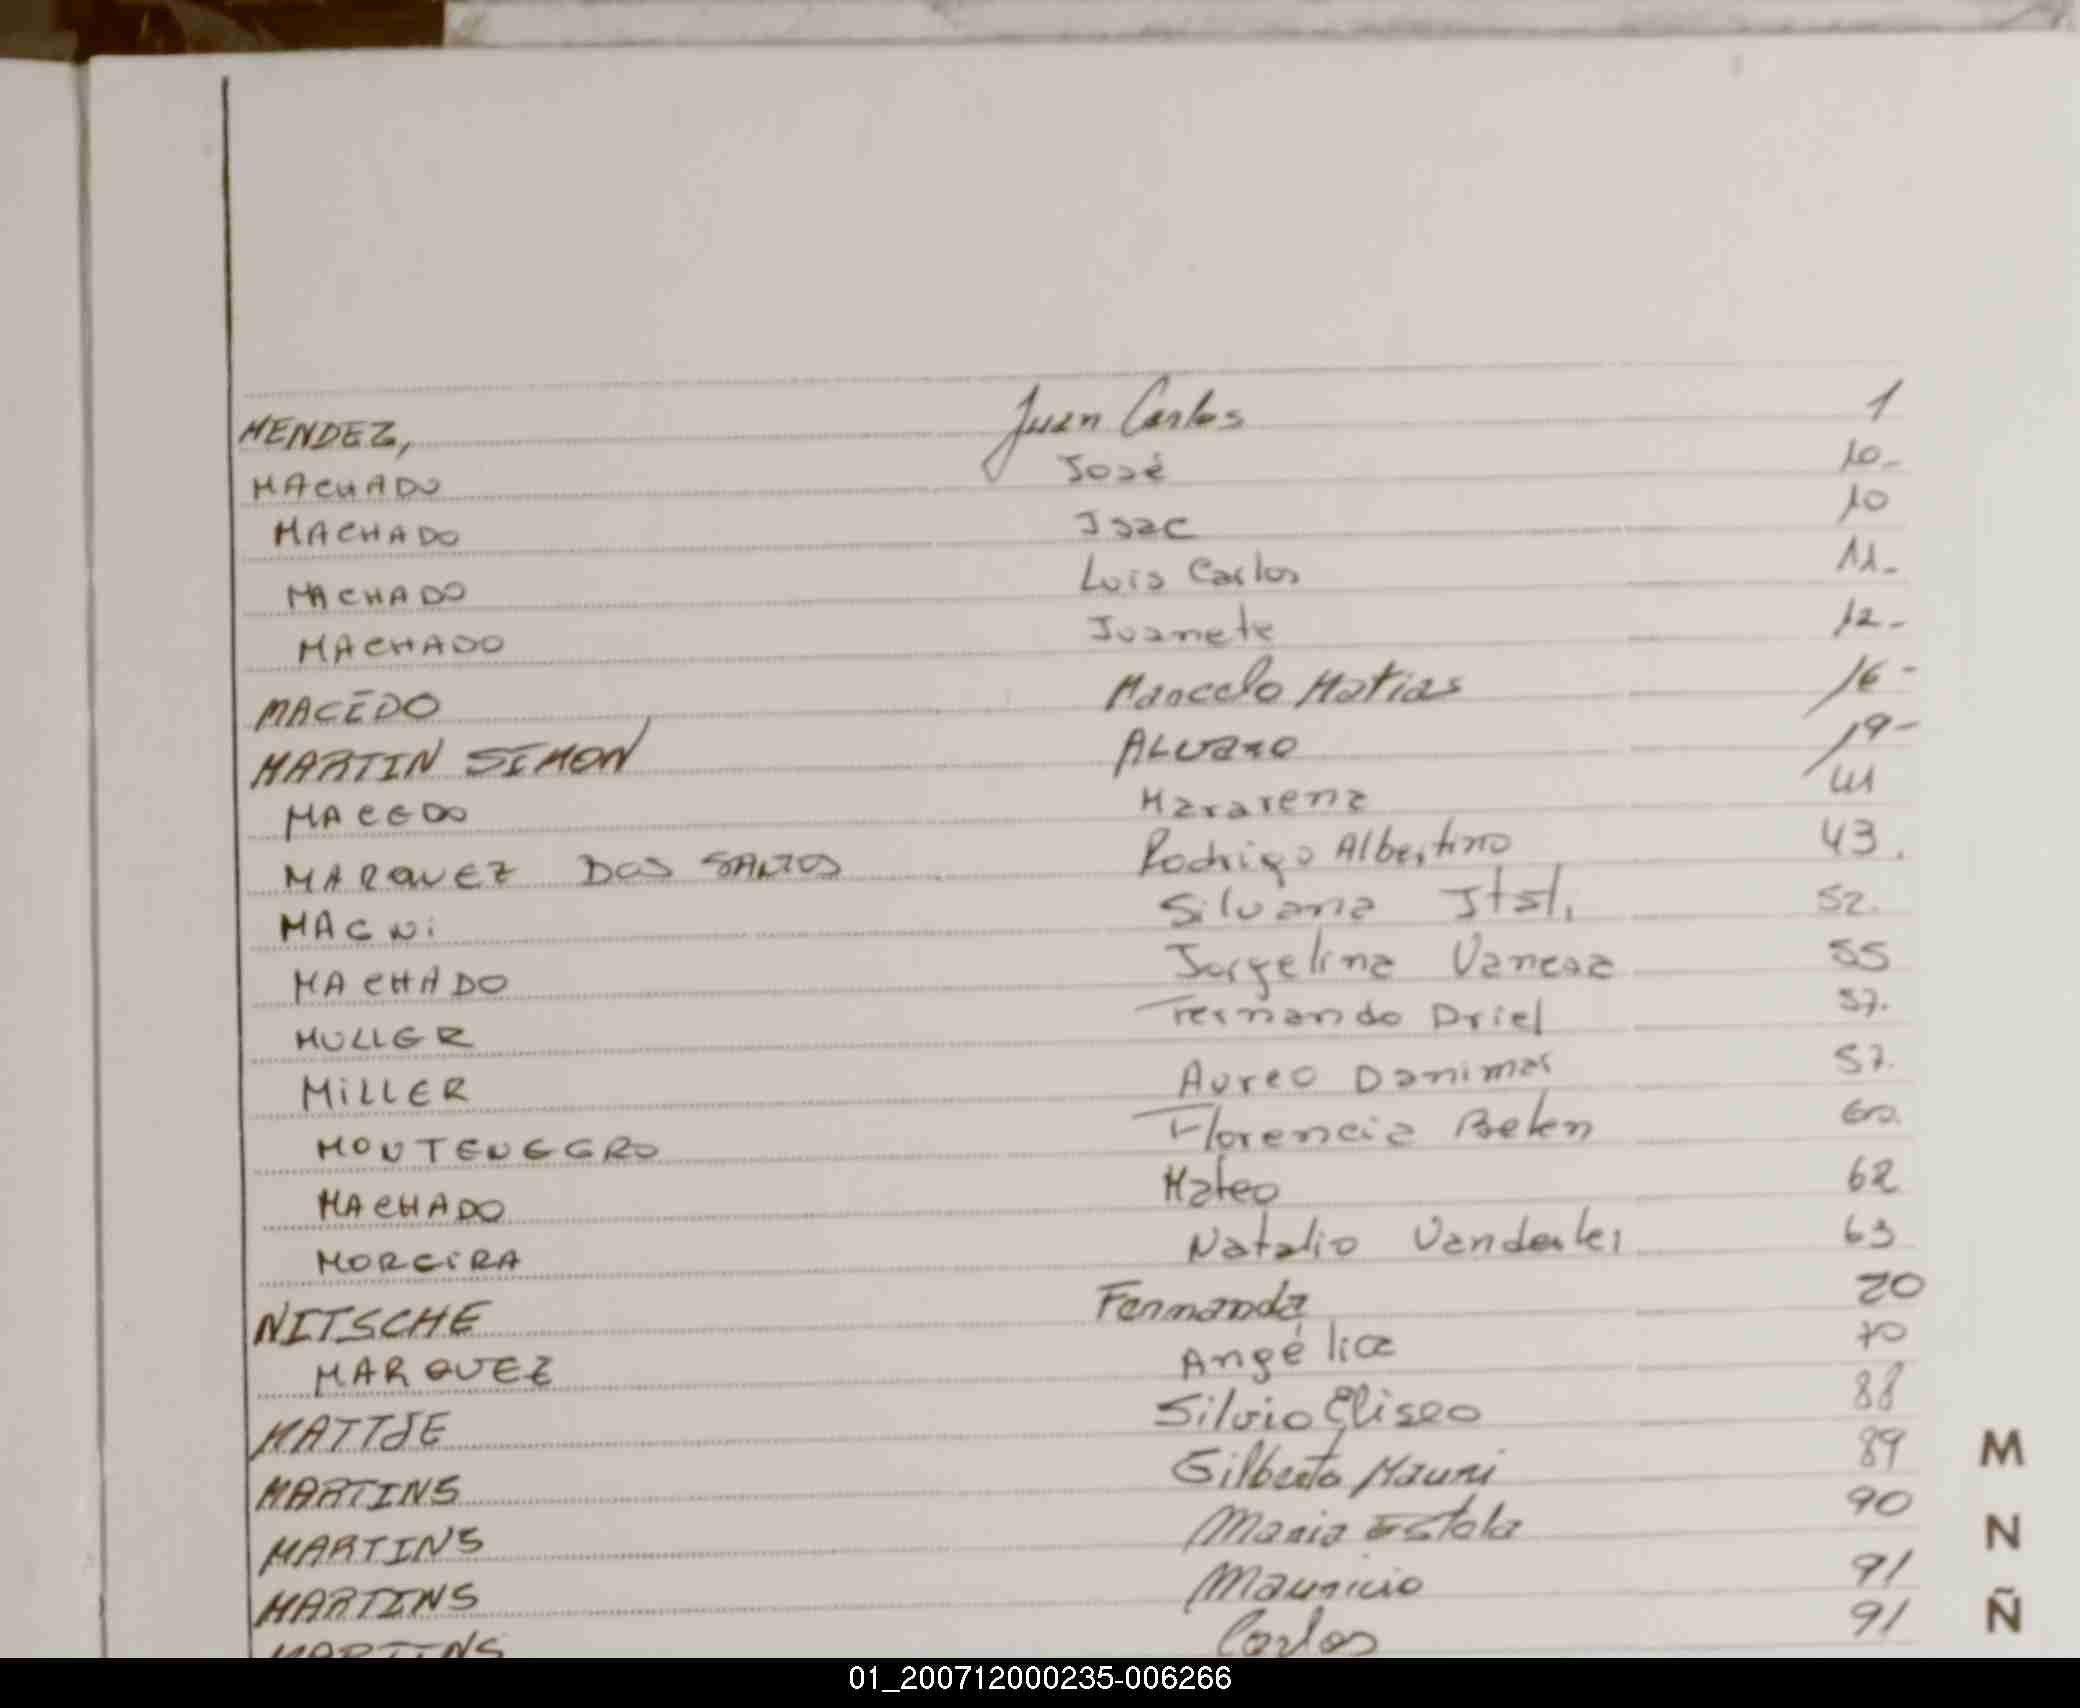 MENDEZ, Juan Carlos 1
MACHADO José 10-
MACHADO Isac 10
MACHADO Luis Carlos 11-
MACHADO Juanete 12-
MACEDO Marcelo Matias 16-
MARTIN SIMON Alvaro 19-
MACEDO Macarena 41
MARQUEZ DOS SANTOS Rodrigo Albertino 43.
MAGNi Silvana 52.
MACHADO Jorgelina Vanesa 55
MULLER Fernando Driel 57.
MiLLER Aureo Danimar 57.
MONTENEGRO Florencia Belen 60.
MACHADO Mateo 62
MOREiRA Natalio Vanderlei 63
NITSCHE Fernanda 70
MARQUEZ Angélica 70
MATTJE Silvio Eliseo 88
MARTINS Gilberto Mauri 89
M
MARTINS Maria Estela 90
N
MARTINS Mauricio 91
MARTINS Carlos 91
Ñ
01_200712000235-006266